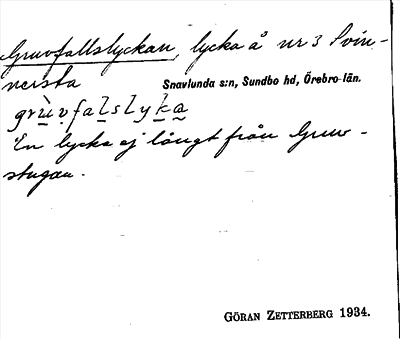 Gruvfallslyckan, lycka å nr 3 Svin-
nersta
Snavlunda s:n, Sundbo hd, Örebro län.
grù̱ṿfaḻsḻyḵa̰
En lycka ej långt från Gruv-
stugan.
GÖRAN ZETTERBERG 1934.